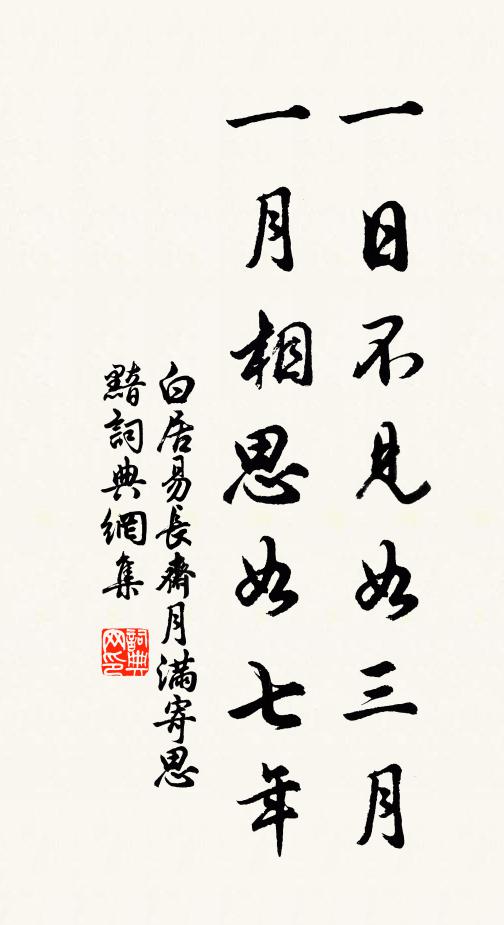 一日不見如三月
一月相思如七年
白居易長齋月滿寄思
黯詞典網集
詞典網印